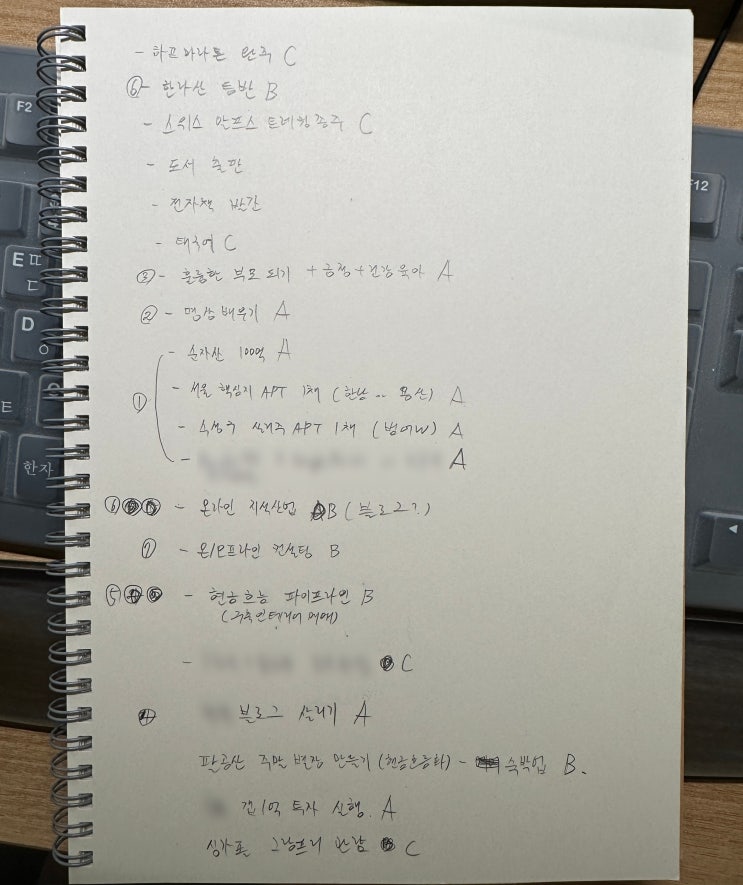 - 하프마라톤 완주 C
⑥- 한라산 등반 B
- 스위스 알프스 트레킹종주 C
- 도서 출판
- 전자책 발간
- 태국어 C
③- 훌륭한 부모 되기 + 긍정+건강육아 A
② - 명상배우기 A
- 순자산 100억 A
① - 서울 핵심지 APT 1채 (한남 or 용산) A
- 수성구 APT 1채 (범어W) A
- A
⑥ - 온라인 지식산업 B (블로그?)
⑦ - 온/오프라인 컨설팅 B
⑤ - 현금흐름 파이프라인 B
(구축인테리어 매매)
- C
④ 블로그 살리기 A
팔공산 주말 별장 만들기 (현금흐름화) - 숙박업 B.
갭1억 투자 실행. A
싱가폴 그랑프리 관람 C
F2
E ㄸ ㄷ
D ㅇ
ㅌ
한자
F12